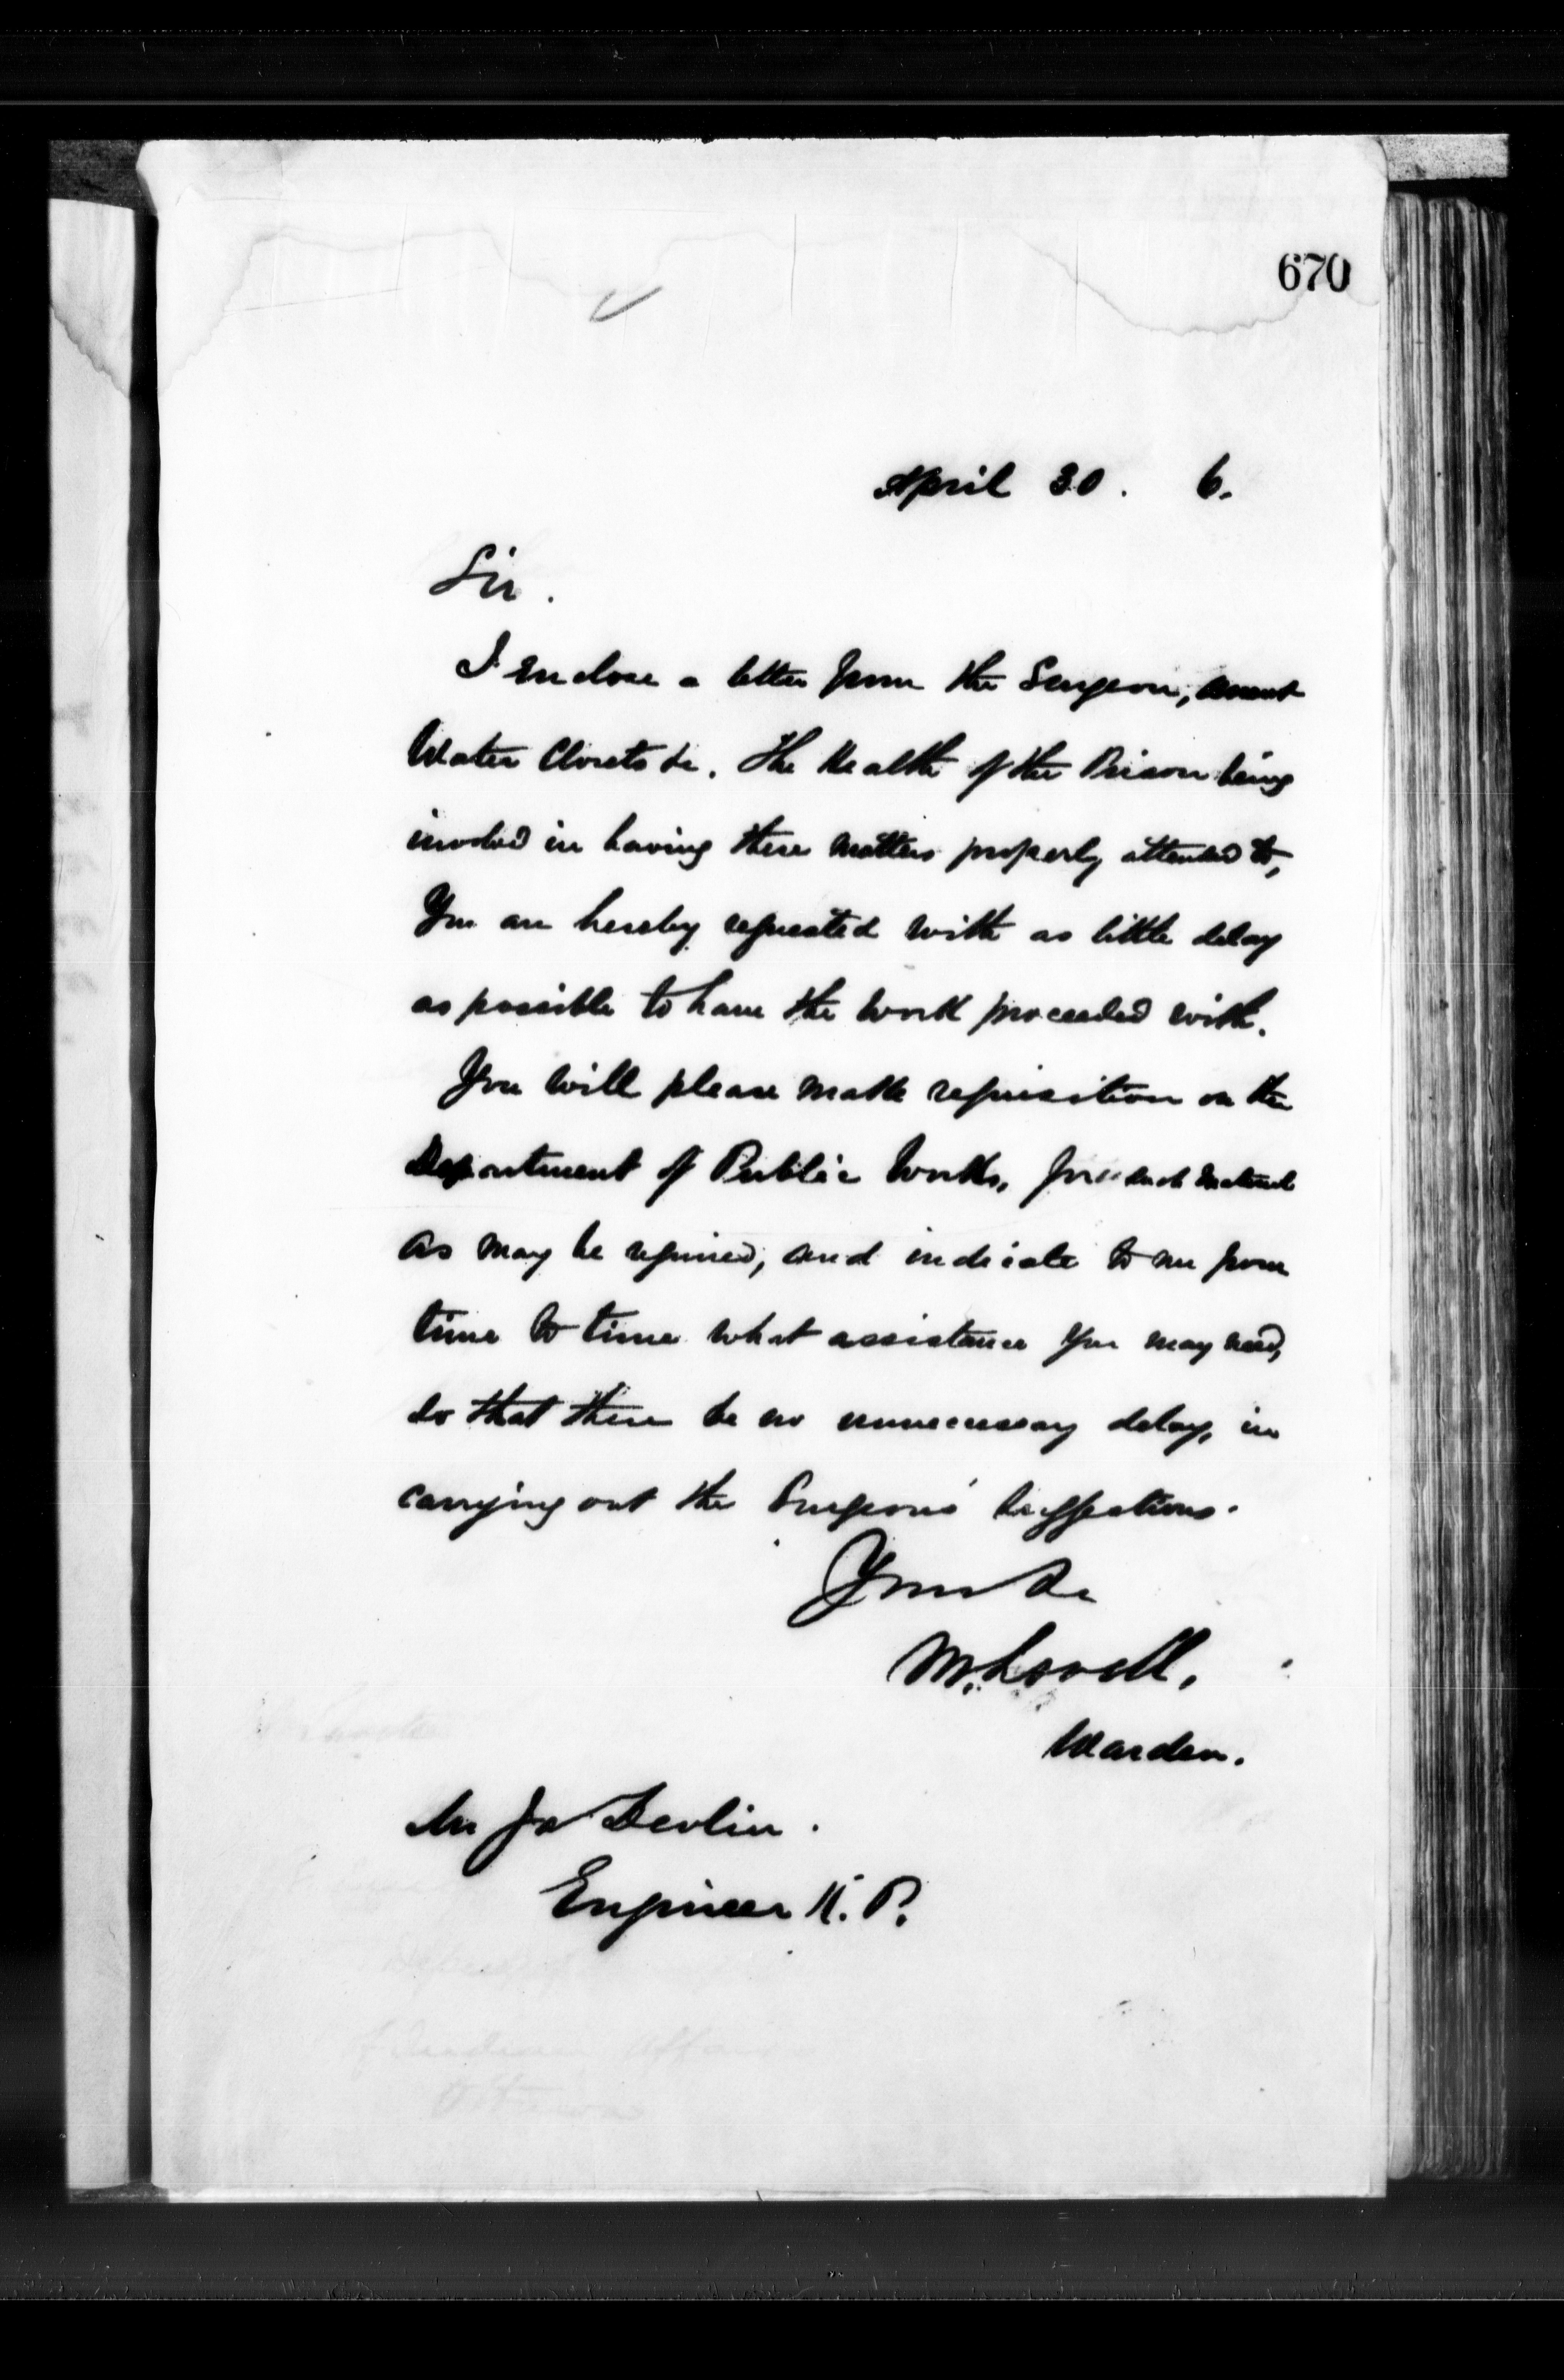 670
April 30. 6.
Sir.
I enclose a letter from the Surgeon, anent
Water Closets &c. The Health of the Prison being
involved in having these matters properly attended to,
You are hereby requested with as little delay
as possible to have the work proceeded with.
You will please make requisition on the
Department of Public Works, for such material
as may be required, and indicate to me from
time to time what assistance you may need,
so that there be no unnecessary delay, in
carrying out the Surgeons' Suggestions.
Yours &c
M. Lavell,
Warden.
Mr Ja Devlin.
Engineer K.P.